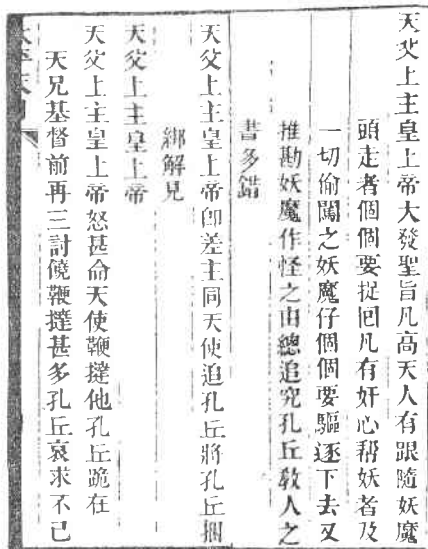 天父上主皇上帝大發聖旨凡高天人有跟隨妖魔
頭走者個個要捉囘凡有奸心幫妖者及
一切偷闖之妖魔仔個個要驅逐下去又
推勘妖魔作怪之由總追究孔丘敎人之
書多錯
天父上主皇上帝卽差主同天使追孔丘將孔丘捆
綁解見
天父上主皇上帝
天父上主皇上帝怒甚命天使鞭撻他孔丘跪在
天兄基督前再三討饒鞭撻甚多孔丘哀求不已